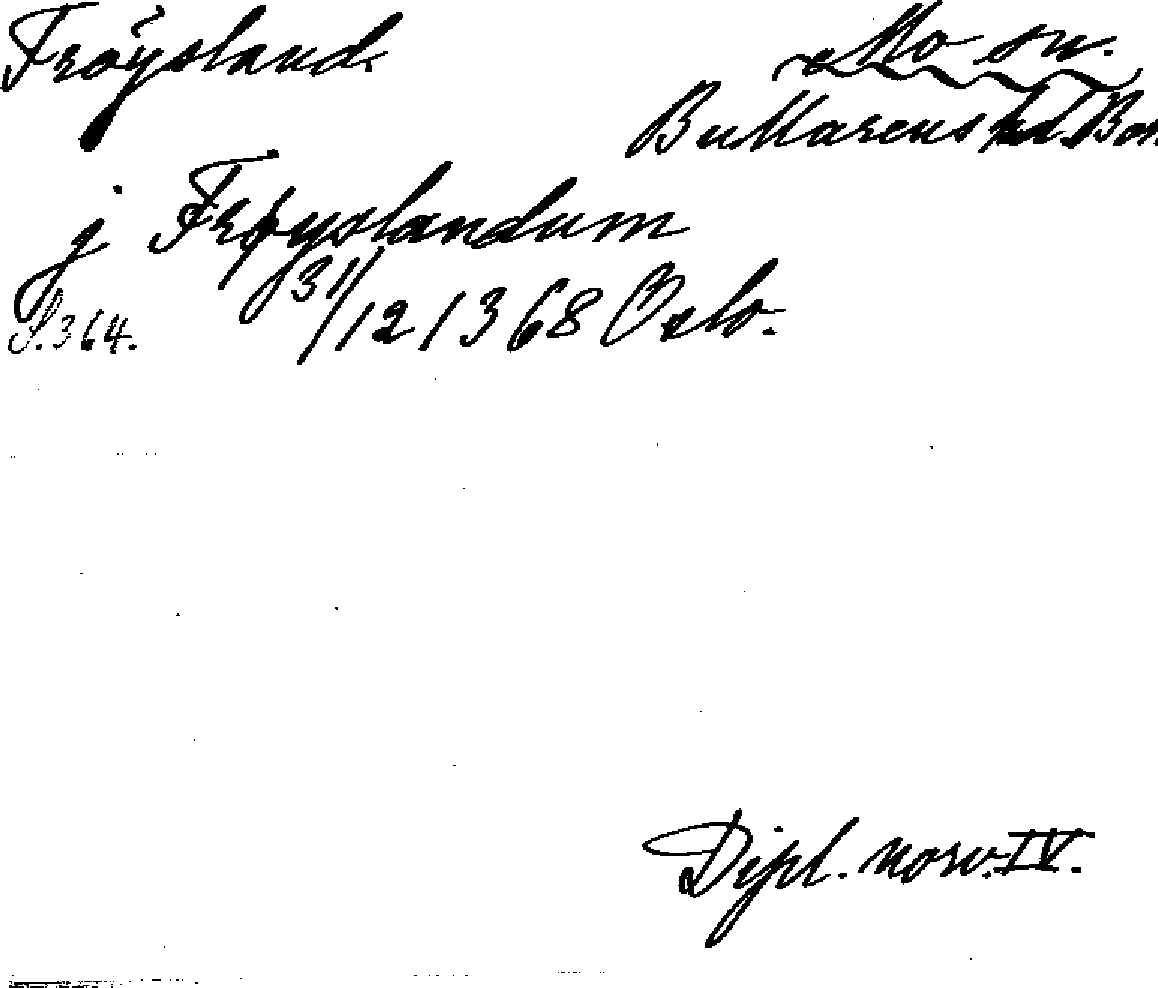 Fröysland.
Mo sn.
Bullarens hd. Boh
j Frøyslandum
S. 364.
31/12 1368 Oslo.
Dipl. norv. IV.